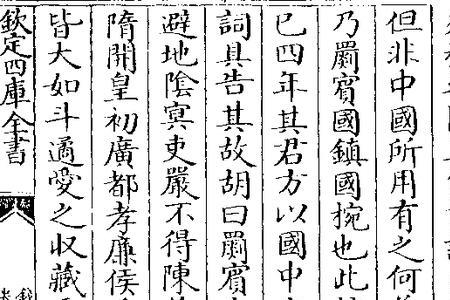 但非中國所用有之何
乃罽賓國鎮國椀也此
已四年其君方以國中
詞具告其故胡曰罽賓
避地陰冥吏嚴不得陳
隋開皇初廣都孝廉侯
皆大如斗遹愛之収藏
欽定四庫全書